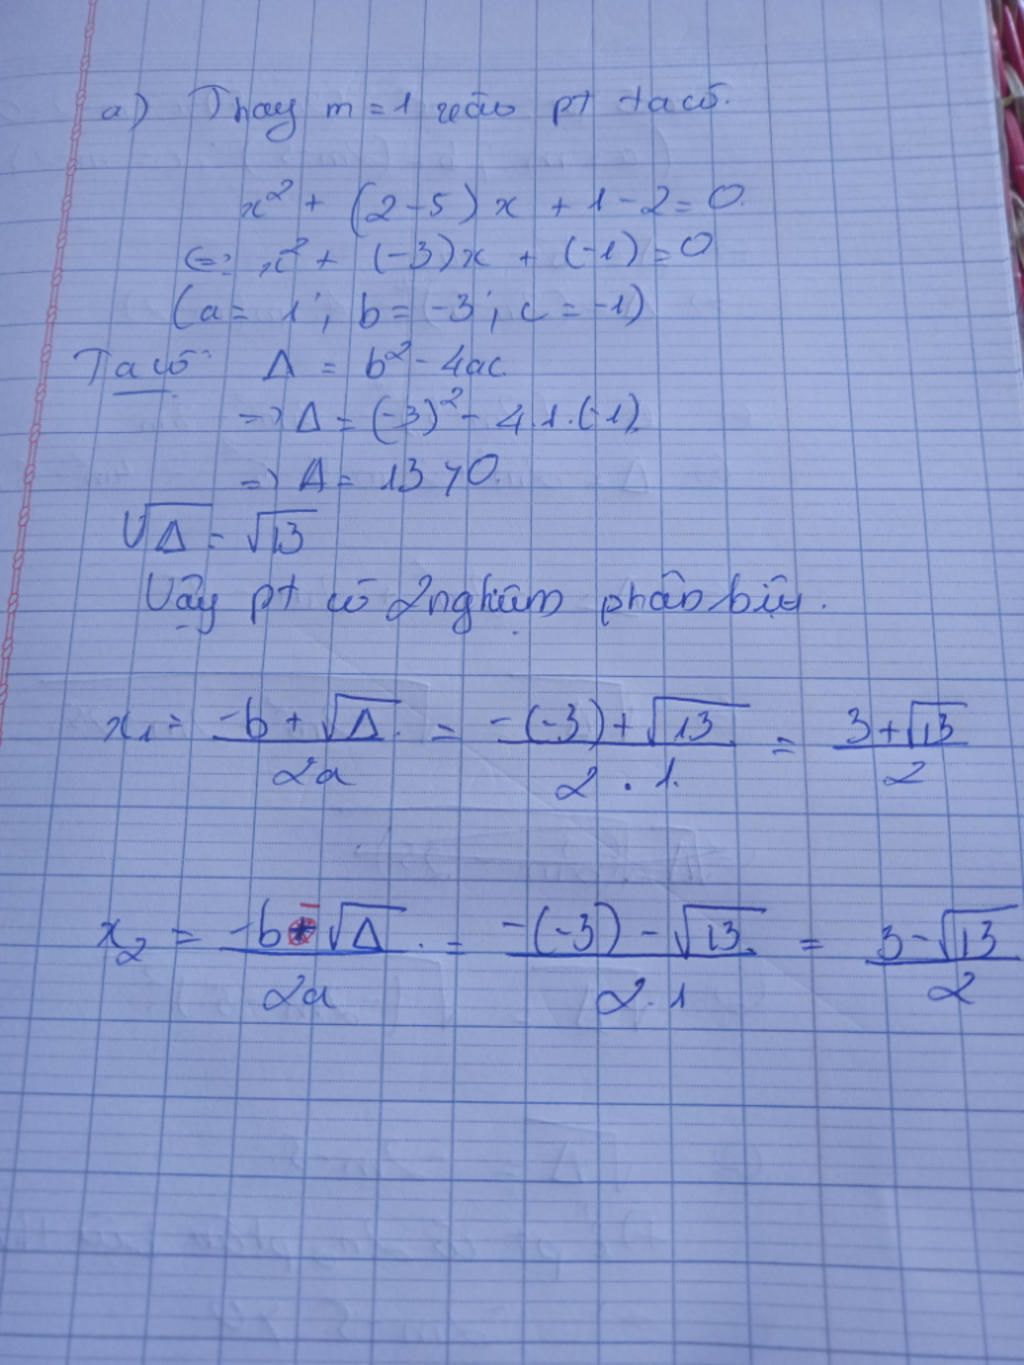 a) Thay m = 1 vào pt ta có.
x² + (2-5)x + 1-2 = 0.
<=> x² + (-3)x + (-1) = 0
(a = 1; b = -3; c = -1)
Ta có: Δ = b² - 4ac.
=> Δ = (-3)² - 4.1.(-1).
=> Δ = 13 > 0.
√Δ = √13
Vậy pt có 2 nghiệm phân biệt.
x₁ = (-b + √Δ)/2a = (-(-3) + √13)/(2 . 1) = (3 + √13)/2
x₂ = (-b - √Δ)/2a = (-(-3) - √13)/(2.1) = (3 - √13)/2